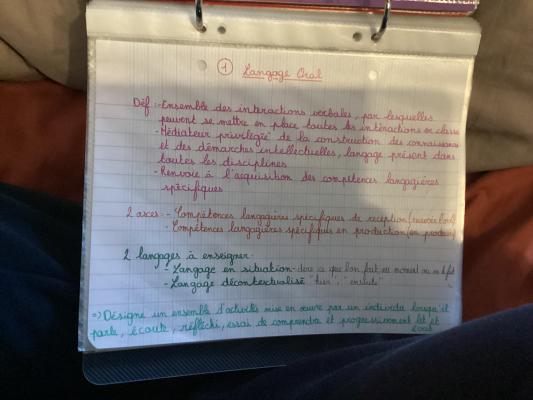 1 Langage Oral
Déf :- Ensemble des interactions verbales, par lesquelles
peuvent se mettre en place toutes les intéractions en classe
- Médiateur privilégié de la construction des connaissances
et des démarches intellectuelles, langage présent dans
toutes les disciplines
- Renvoie à l'acquisition des compétences langagières
spécifiques
2 axes :- Compétences langagières spécifiques de réception
- Compétences langagières spécifiques en production
2 langages à enseigner
- Langage en situation dire ce que l'on fait au moment où on le fait
- Langage décontextualisé "hier", "ensuite"
=> Désigne un ensemble d'activités mise en œuvre par un individu lorsqu'il
parle, écoute, réfléchi, essai de comprendre et progressivement lit et
écrit